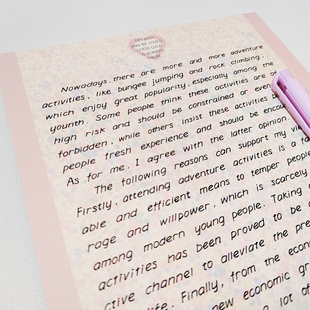 AND BE LOVED
GOOD LUCK
Nowadays, there are more and more adventure
activities, like bungee jumping and rock climbing,
which enjoy great popularity, especially among the
younth. Some people think these activities are of
high risk and should be constrained or even
forbidden, while others insist these activities
people fresh experience and should be encou
As for me, I agree with the latter opinion
The following reasons can support my view
Firstly, attending adventure activities is a
able and efficient means to temper people
rage and willpower, which is scarcely
among modern young people. Taking
activities has been proved to be
ctive channel to alleviate the pre
life. Finally, from the econ
new economic gr
lot of